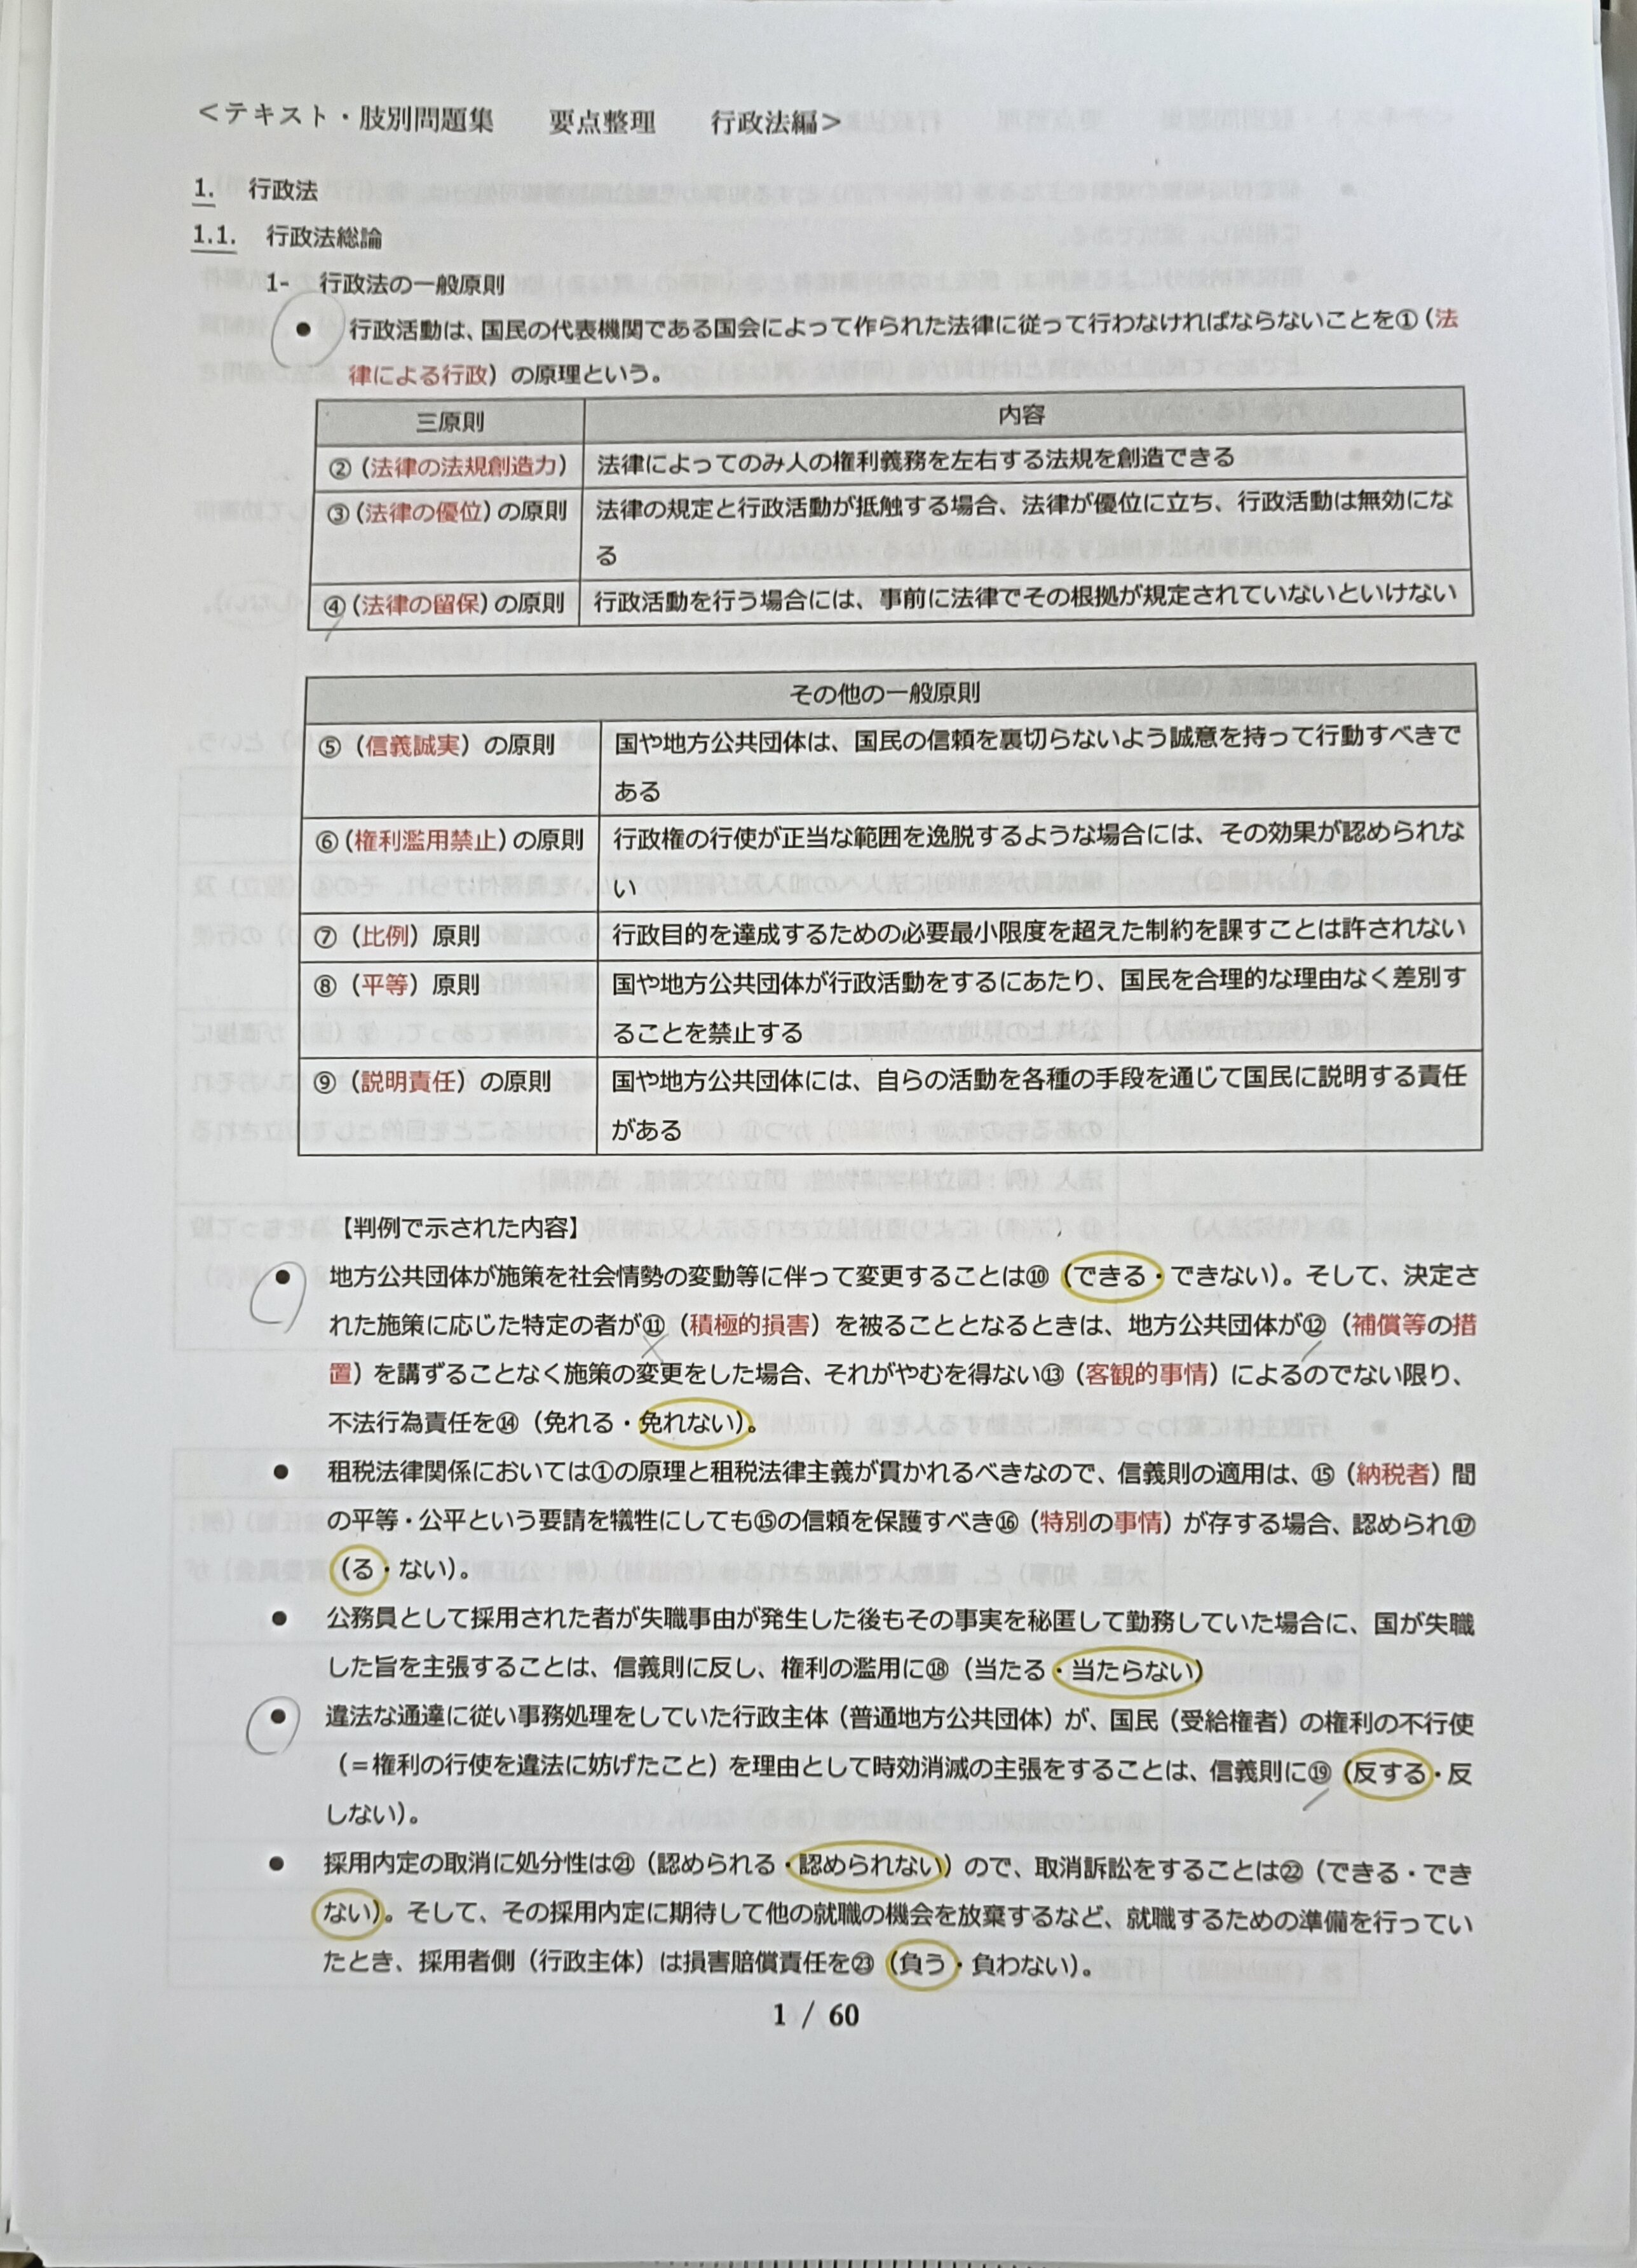 ＜テキスト・肢別問題集　　要点整理　　行政法編＞
1.　行政法
1.1.　行政法総論
1-　行政法の一般原則
●　行政活動は、国民の代表機関である国会によって作られた法律に従って行わなければならないことを①（法
律による行政）の原理という。
三原則　内容
②（法律の法規創造力）　法律によってのみ人の権利義務を左右する法規を創造できる
③（法律の優位）の原則　法律の規定と行政活動が抵触する場合、法律が優位に立ち、行政活動は無効にな
る
④（法律の留保）の原則　行政活動を行う場合には、事前に法律でその根拠が規定されていないといけない
その他の一般原則
⑤（信義誠実）の原則　国や地方公共団体は、国民の信頼を裏切らないよう誠意を持って行動すべきで
ある
⑥（権利濫用禁止）の原則　行政権の行使が正当な範囲を逸脱するような場合には、その効果が認められな
い
⑦（比例）原則　行政目的を達成するための必要最小限度を超えた制約を課すことは許されない
⑧（平等）原則　国や地方公共団体が行政活動をするにあたり、国民を合理的な理由なく差別す
ることを禁止する
⑨（説明責任）の原則　国や地方公共団体には、自らの活動を各種の手段を通じて国民に説明する責任
がある
【判例で示された内容】
●　地方公共団体が施策を社会情勢の変動等に伴って変更することは⑩（できる・できない）。そして、決定さ
れた施策に応じた特定の者が⑪（積極的損害）を被ることとなるときは、地方公共団体が⑫（補償等の措
置）を講ずることなく施策の変更をした場合、それがやむを得ない⑬（客観的事情）によるのでない限り、
不法行為責任を⑭（免れる・免れない）。
●　租税法律関係においては①の原理と租税法律主義が貫かれるべきなので、信義則の適用は、⑮（納税者）間
の平等・公平という要請を犠牲にしても⑮の信頼を保護すべき⑯（特別の事情）が存する場合、認められ⑰
（る・ない）。
●　公務員として採用された者が失職事由が発生した後もその事実を秘匿して勤務していた場合に、国が失職
した旨を主張することは、信義則に反し、権利の濫用に⑱（当たる・当たらない）
●　違法な通達に従い事務処理をしていた行政主体（普通地方公共団体）が、国民（受給権者）の権利の不行使
（＝権利の行使を違法に妨げたこと）を理由として時効消滅の主張をすることは、信義則に⑲（反する・反
しない）。
●　採用内定の取消に処分性は㉑（認められる・認められない）ので、取消訴訟をすることは㉒（できる・でき
ない）。そして、その採用内定に期待して他の就職の機会を放棄するなど、就職するための準備を行ってい
たとき、採用者側（行政主体）は損害賠償責任を㉓（負う・負わない）。
1 / 60